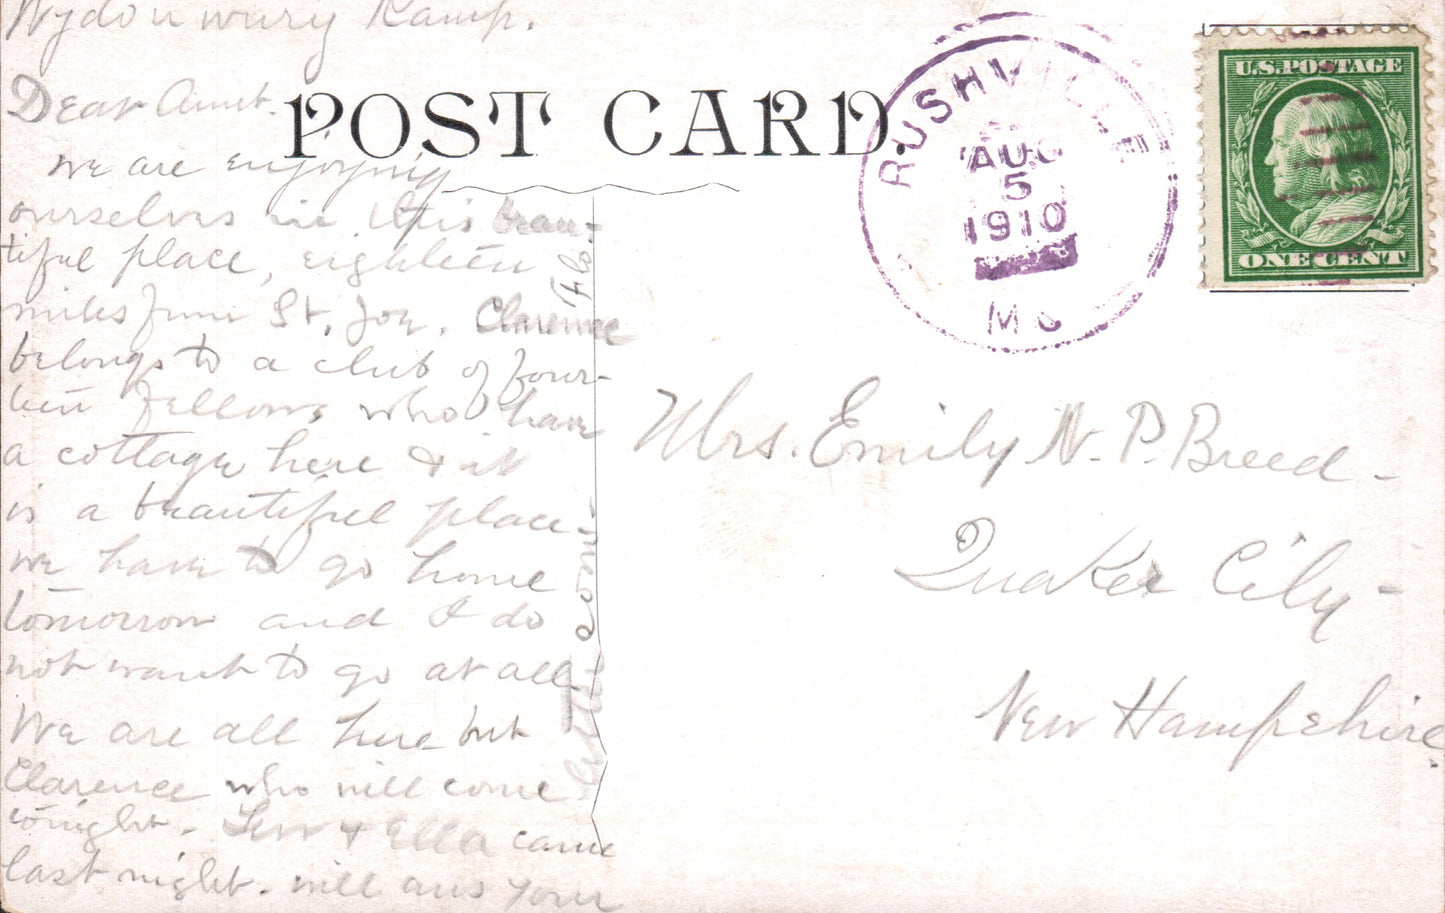 Wydounwury Kamp.
Dear Aunt.
We are enjoying
ourselves in this beau-
tiful place, eighteen
miles from St. Joe. Clarence
belongs to a club of four-
teen fellows who have
a cottage here & it
is a beautiful place-
we have to go home
tomorrow and I do
not want to go at all-
We are all here but
Clarence who will come
tonight. Lew & Ella came
last night. will ans your
letter soon
Flo.
POST CARD.
RUSHVILLE
AUG
5
1910
MO
U.S. POSTAGE
ONE CENT
Mrs. Emily N. P. Breed-
Quaker City-
New Hampshire.